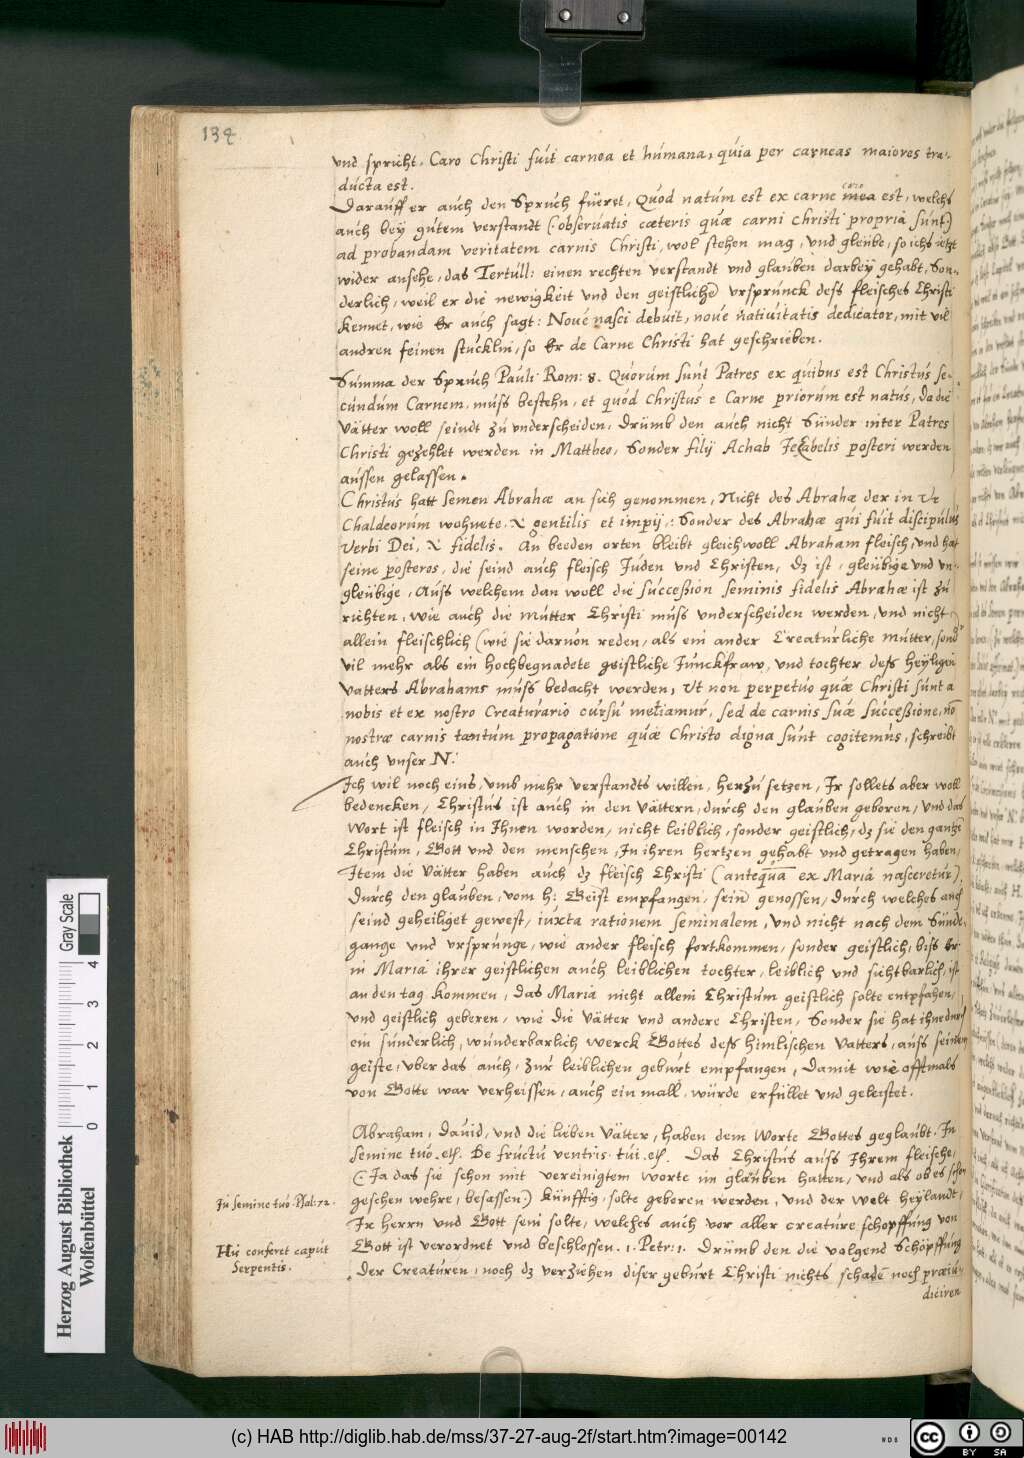 134
vnd spricht. Caro Christi fuit carnea et humana, quia per carneas maiores tra-
ducta est.
Darauff er auch den Spruch füeret, Quod natum est ex carne mea est, welchs
caro
auch bey gutem verstandt (: obseruatis cæteris quæ carni Christi propria sunt:)
ad probandam veritatem carnis Christi, wol stehen mag, vnd gleube, so ichs ietzt
wider ansehe, das Tertull: einen rechten verstandt vnd glauben darbey gehabt, Son-
derlich, weil er die newigkeit vnd den geistlichē vrsprunck dess fleisches Christi
kennet, wie Er auch sagt: Noue nasci debuit, noue natiuitatis dedicator, mit vil
andren feinen stücklin, so Er de Carne Christi hat geschrieben.
Summa der Spruch Pauli Rom: 8. Quorum sunt Patres ex quibus est Christus se-
cundum Carnem, muss bestehn, et quod Christus e Carne priorum est natus, da die
Vätter woll seindt zu vnderscheiden, Drumb den auch nicht Sünder inter Patres
Christi gezehlet werden in Mattheo, Sonder filij Achab Jezabelis posteri werden
aussen gelassen.
Christus hatt semen Abrahæ an sich genommen, Nicht des Abrahæ der in Vr
Chaldeorum wohnete, & gentilis et impij,: Sonder des Abrahæ qui fuit discipulus
Verbi Dei, & fidelis. An beeden orten bleibt gleichwoll Abraham fleisch, vnd hat
seine posteros, die seind auch fleisch Juden vnd Christen, dz ist, gleubige vnd vn-
gleubige, Auss welchem dan woll die succeßion seminis fidelis Abrahæ ist zu
richten, wie auch die mutter Christi muss vnderscheiden werden, vnd nicht
allein fleischlich (wie sie daruon reden, als ein ander Creaturliche mutter, sond
vil mehr als ein hochbegnadete geistliche Junckfraw, vnd tochter dess heyligen
Vatters Abrahams muss bedacht werden, Vt non perpetuo quæ Christi sunt a
nobis et ex nostro Creaturario cursu metiamur, sed de carnis suæ succeßione, nō
nostræ carnis tantum propagatione quæ Christo digna sunt cogitemus, schreibt
auch vnser N:
Ich wil noch eins, vmb mehr verstandts willen, herzu setzen, Ir sollets aber woll
bedencken, Christus ist auch in den Vättern, durch den glauben geboren, vnd das
Wort ist fleisch in Ihnen worden, nicht leiblich, sonder geistlich, dz sie den gantzē
Christum, Gott vnd den menschen, In ihren hertzen gehabt vnd getragen haben,
Item die Vätter haben auch dz fleisch Christi (antequā ex Maria nasceretur)
Durch den glauben, vom h: Geist empfangen, sein genossen, durch welches auch
seind geheiliget gewest, iuxta rationem seminalem, Vnd nicht nach dem Sünde-
gange vnd vrsprunge, wie ander fleisch fortkommen, sonder geistlich, biss Er
in Maria ihrer geistlichen auch leiblichen tochter, leiblich vnd sichtbarlich, ist
an den tag kommen, das Maria nicht allein Christum geistlich solte entpfahen,
vnd geistlich geberen, wie die Vätter vnd andere Christen, Sonder sie hat ihne durch
ein sunderlich, wunderbarlich werck Gottes dess himlischen Vatters, auss seinem
geiste, vber das auch, zur leiblichen geburt empfangen, Damit wie offtmals
von Gotte war verheissen, auch ein mall, würde erfüllet vnd geleistet.
Abraham, Dauid, vnd die lieben Vätter, haben dem Worte Gottes geglaubt. In
semine tuo. etc. De fructu ventris tui. etc. Das Christus auss Ihrem fleische,
(: Ja das sie schon mit vereinigtem worte im glauben hatten, vnd als ob es schon
geschen wehre, besassen:) künfftig, solte geboren werden, vnd der Welt heylandt,
Ir herrn vnd Gott sein solte, welches auch vor aller creature schopffung von
Gott ist verordnet vnd beschlossen. 1. Petr: 1. Drumb den die volgend Schöpffung
der Creaturen, noch dz verziehen diser geburt Christi nichts schadē noch præiu-
diciren
In semine tuo. Psal: 72.
Hu conferet caput
Serpentis.
Herzog August Bibliothek
Wolfenbüttel
0 1 2 3 4
Gray Scale
(c) HAB http://diglib.hab.de/mss/37-27-aug-2f/start.htm?image=00142
WDB
cc
BY SA